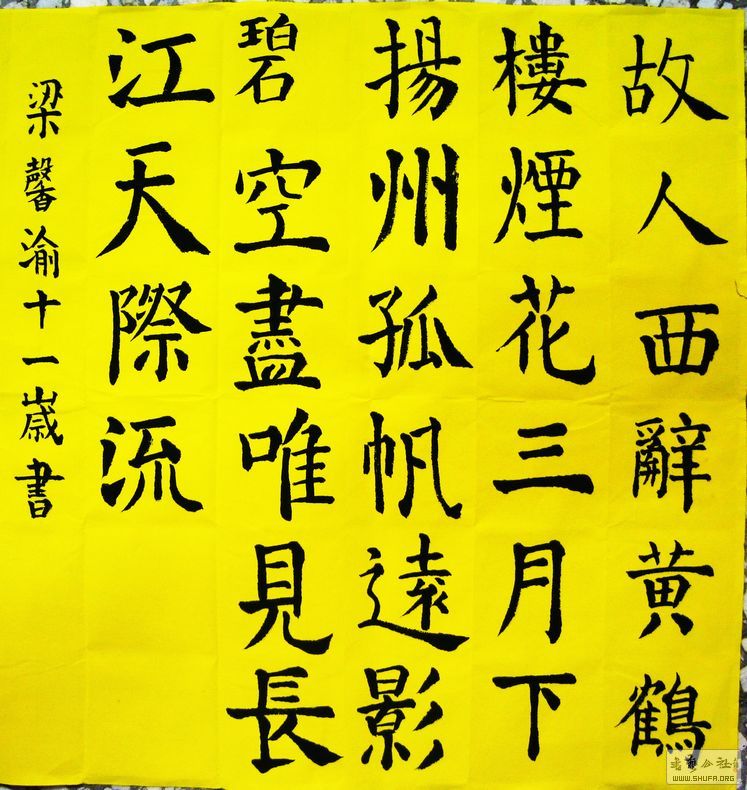 故人西辭黃鶴
樓煙花三月下
揚州孤帆遠影
碧空盡唯見長
江天際流
梁馨渝十一歲書
WWW.SHUFA.ORG